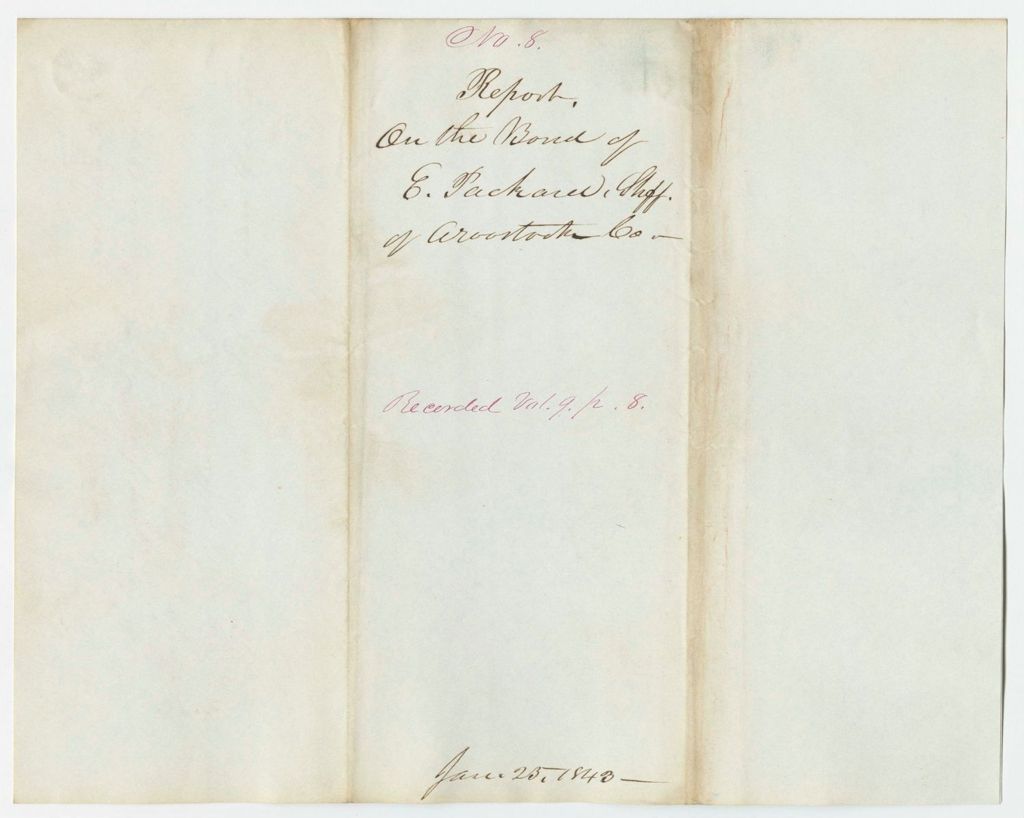 No. 8.
Report,
On the Bond of
E. Packard, Shff.
of Aroostook Co —
Recorded Vol. 9. p. 8.
Jan. 25, 1843 —